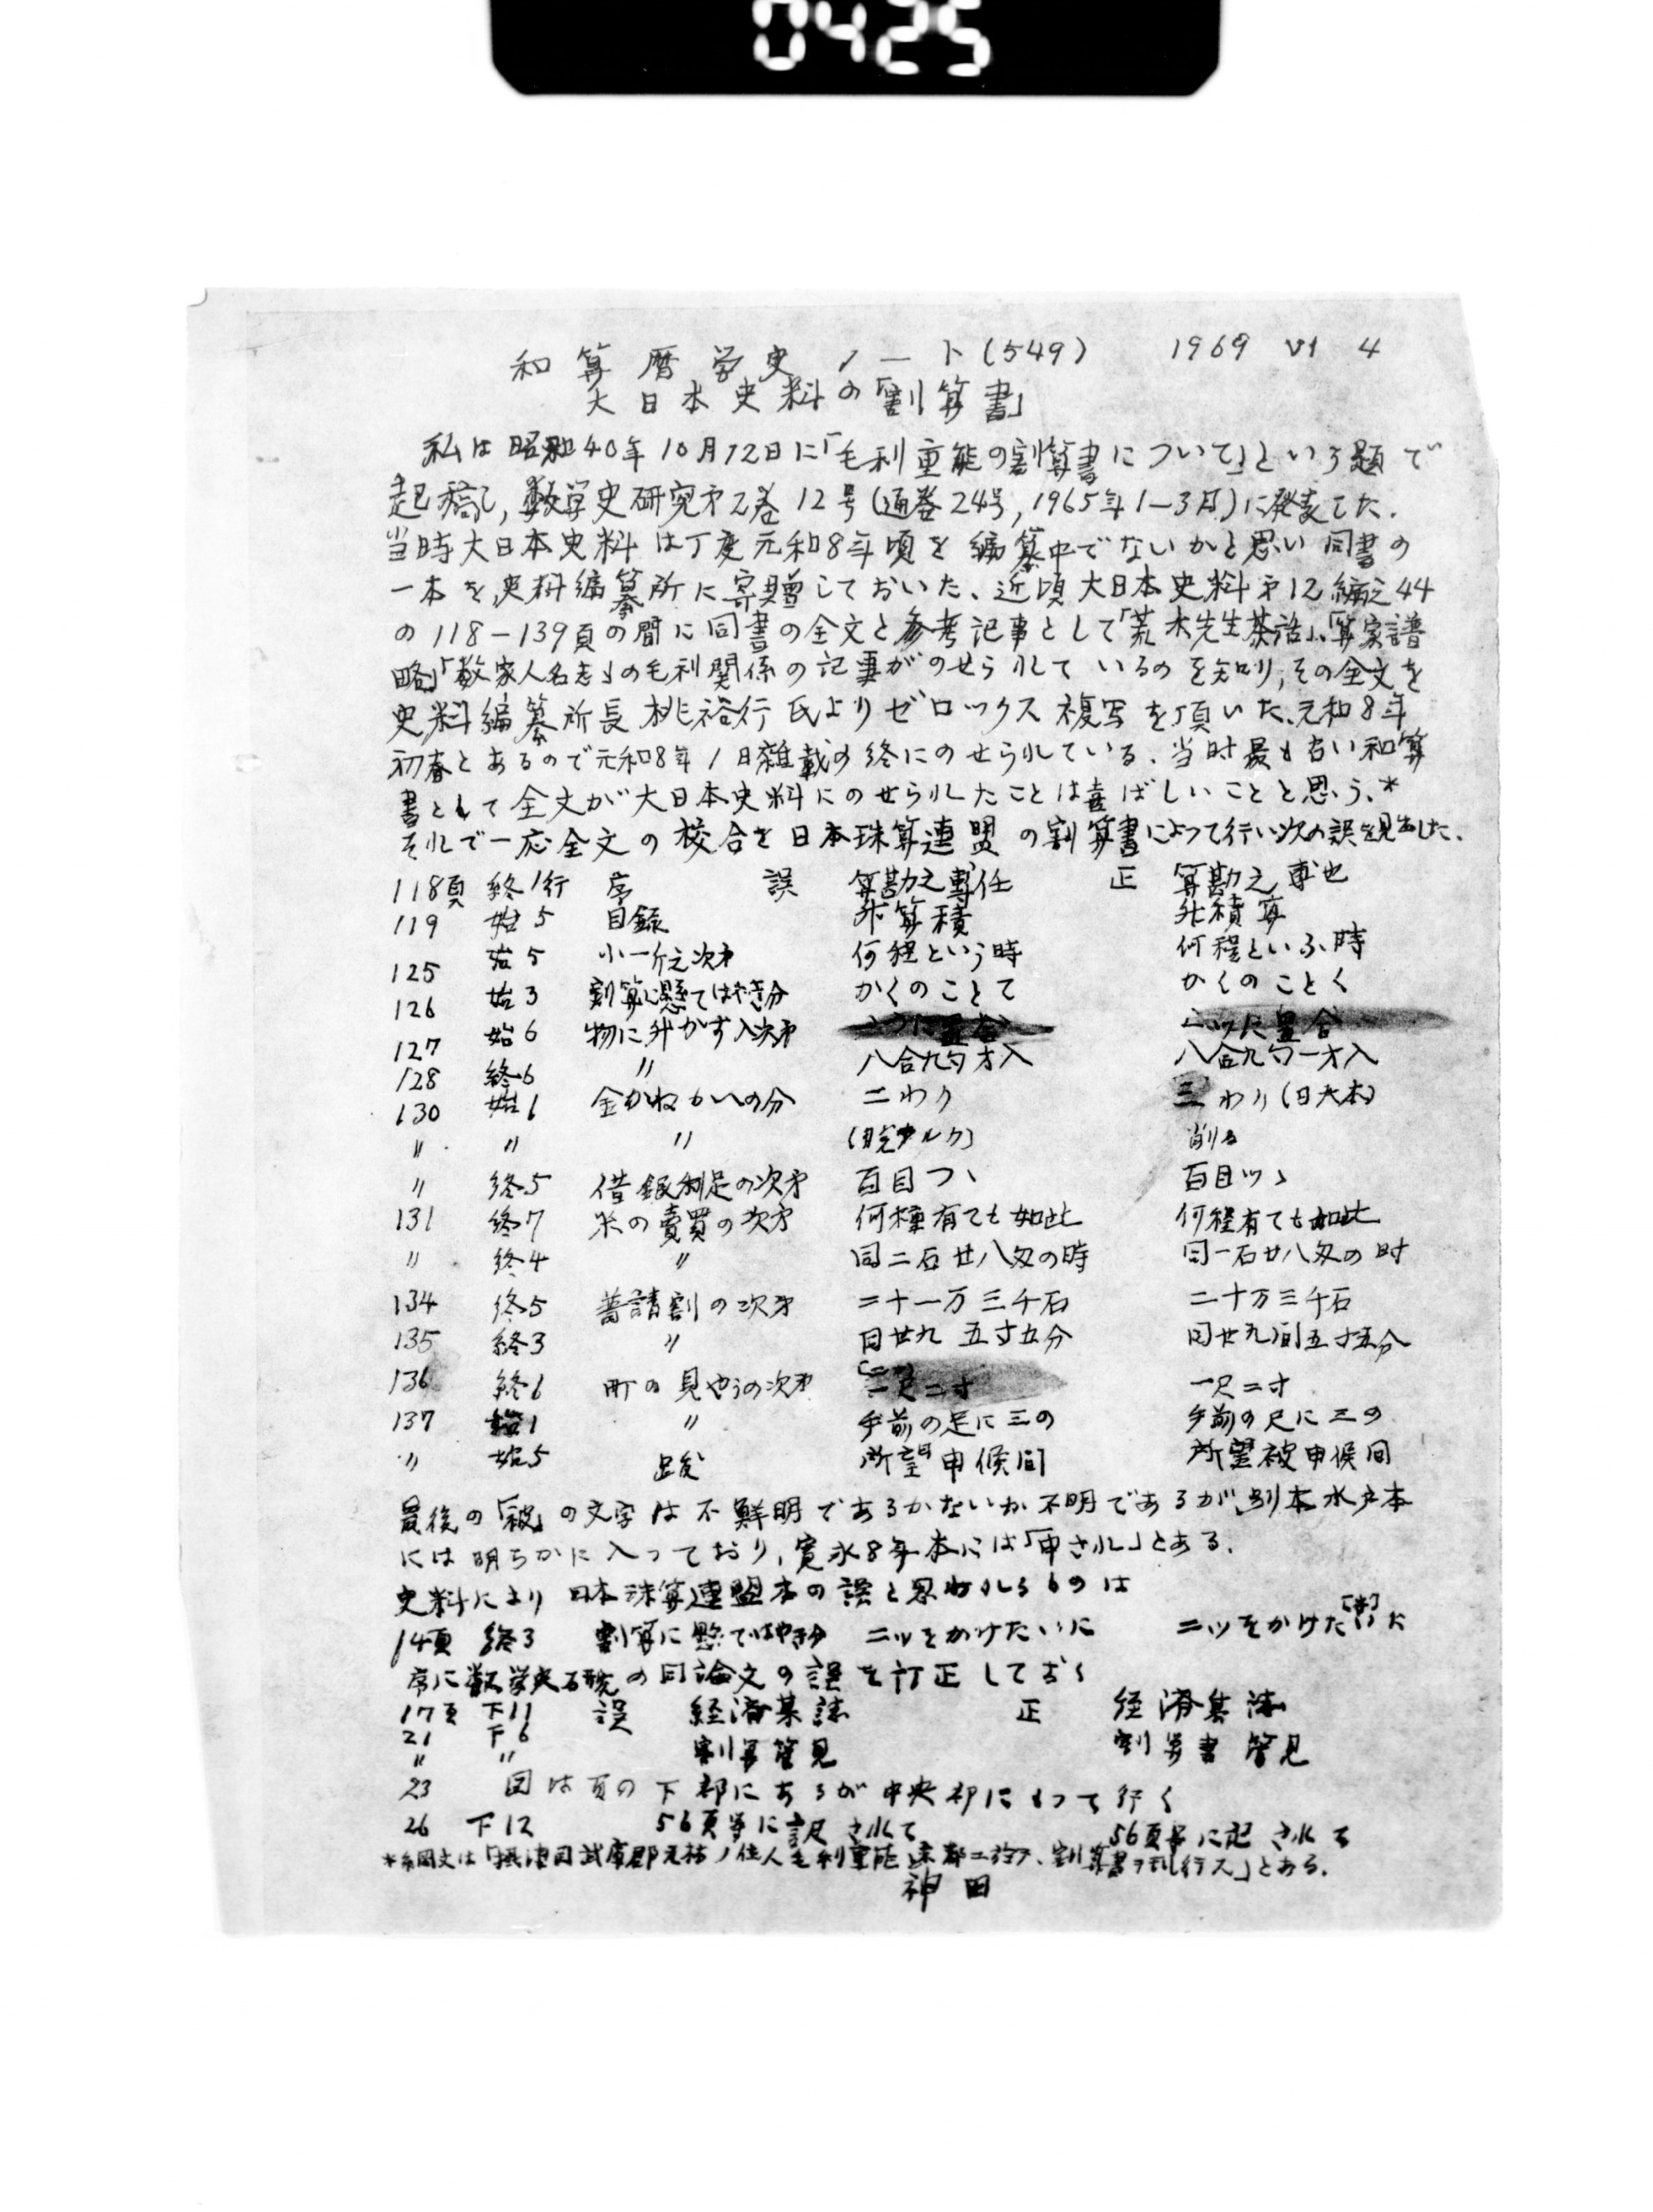 0425
和算暦学史ノート(549) 1969 VI 4
大日本史料の「割算書」
私は昭和40年10月12日に「毛利重能の割算書について」という題で
起稿し,数学史研究第2巻12号(通巻24号,1965年1-3月)に発表した.
当時大日本史料は丁度元和8年頃を編纂中でないかと思い同書の
一本を史料編纂所に寄贈しておいた、近頃大日本史料第12編之44
の118-139頁の間に同書の全文と参考記事として「荒木先生茶話」,「算家譜
略」「数家人名志」の毛利関係の記事がのせられているのを知り,その全文を
史料編纂所長桃裕行氏よりゼロックス複写を頂いた、元和8年
初春とあるので元和8年1月雑載の終にのせられている.当時最も古い和算
書として全文が大日本史料にのせられたことは喜ばしいことと思う.*
それで一応全文の校合を日本珠算連盟の割算書によって行い次の誤を見出した.
118頁 終1行 序 誤 算勘之専任 正 算勘之専也
119 始5 目録 升算積 升積算
125 始5 小一斤之次第 何程という時 何程といふ時
126 始3 割算に懸てはやき分 かくのことて かくのことく
127 始6 物に升かす入次第
128 終6 〃 八合九勺才入 八合九勺一才入
130 始1 金かねかへの分 二わり 三わり(日大本)
〃 〃 〃 削る
〃 終5 借銀利足の次第 百目つゝ 百目ツゝ
131 終7 米の賣買の次第 何種有ても如此 何程有ても如此
〃 終4 〃 同二石廿八匁の時 同一石廿八匁の時
134 終5 普請割の次第 二十一万三千石 二十万三千石
135 終3 〃 同廿九 五寸五分 同廿九間五寸五分
136 終6 町の見やうの次第 一尺二寸 一尺二寸
137 始1 〃 手前の足に三の 手前の尺に三の
〃 始5 跋 所望申候間 所望被申候間
最後の「被」の文字は不鮮明であるかないか不明であるが、別本水戸本
には明らかに入っており,寛永8年本には「申され」とある.
史料により日本珠算連盟本の誤と思われるものは
14頁 終3 割算に懸てはやき分 二ツをかけたいに 二ツをかけた
序に数学史研究の同論文の誤を訂正しておく
17頁 下11 誤 経済某誌 正 経済集誌
21 下6
〃 〃 割算管見 割算書管見
23 図は頁の下部にあるが中央部にもって行く
26 下12 56頁等に訳されて 56頁等に記されて
*綱文は「摂津国武庫郡瓦林ノ住人毛利重能京都ニ於テ、割算書ヲ刊行ス」とある.
神田